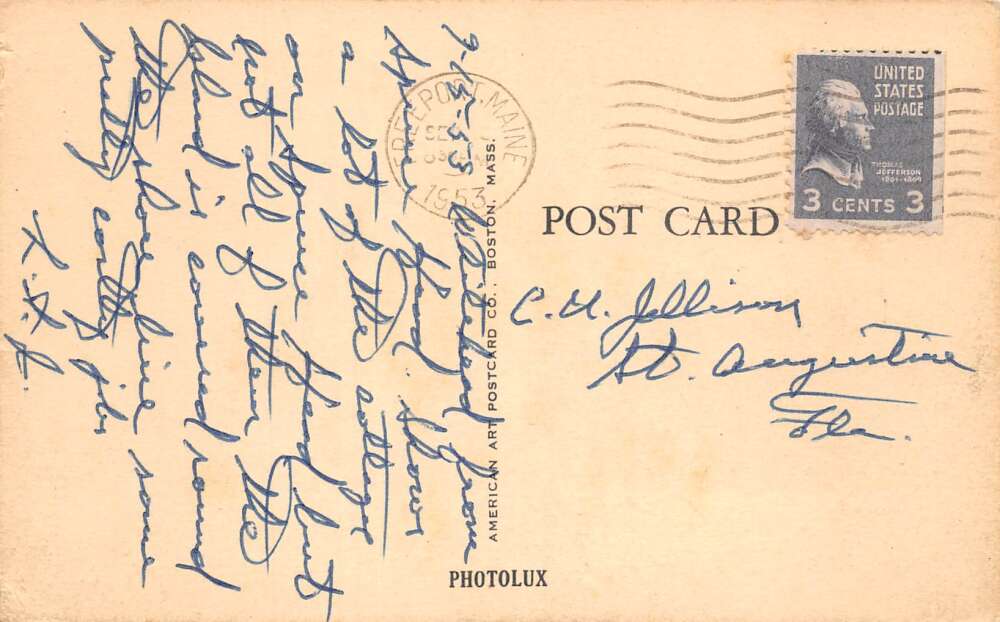 9-14-53
Whitehead from
Spruce Head. Shows
a lot of the cottages
on Spruce Head but
not all of them the
Island is covered round
the shore line some
pretty costly jobs
FREEPORT, MAINE
SE
1953
UNITED
STATES
POSTAGE
THOMAS
JEFFERSON
1801-1809
3 CENTS 3
POST CARD
C. H. Jellison
St. Augustine
Fla.
AMERICAN ART POSTCARD CO., BOSTON, MASS.
PHOTOLUX